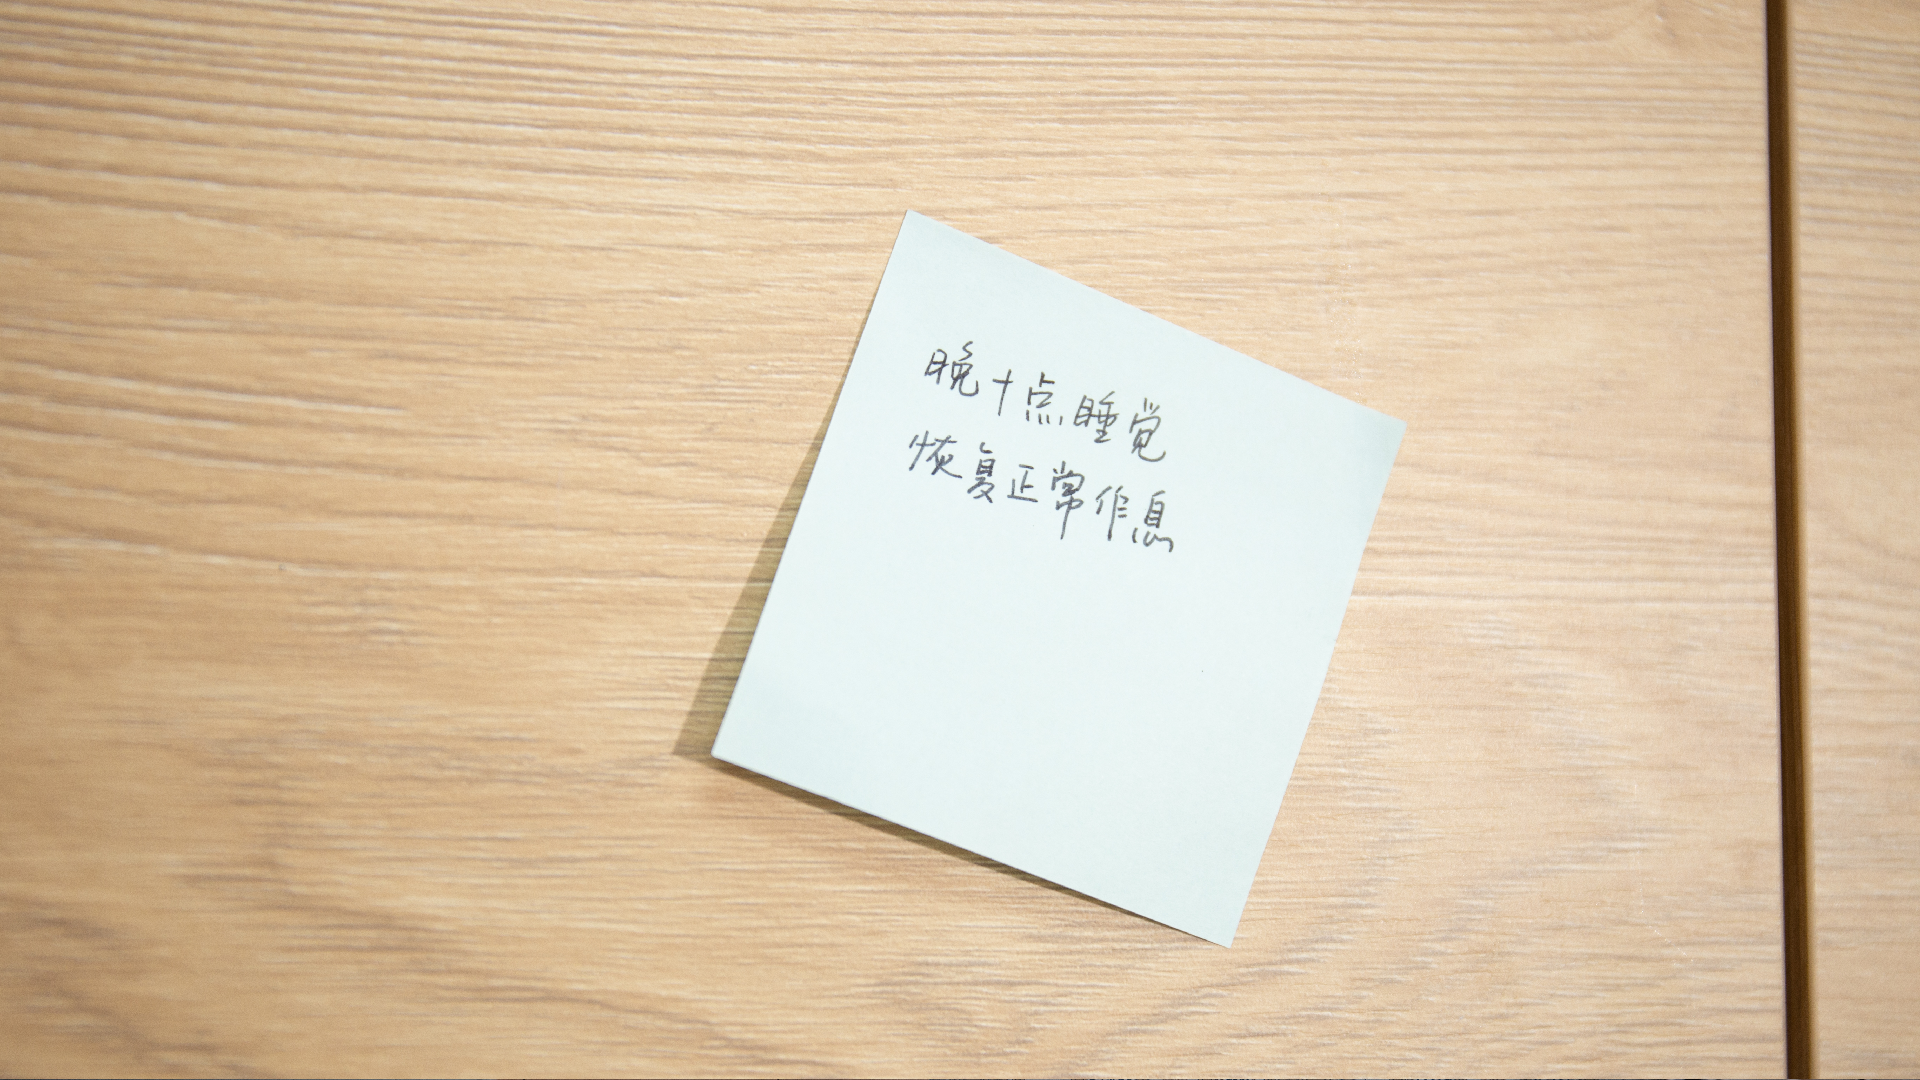 晚十点睡觉
恢复正常作息